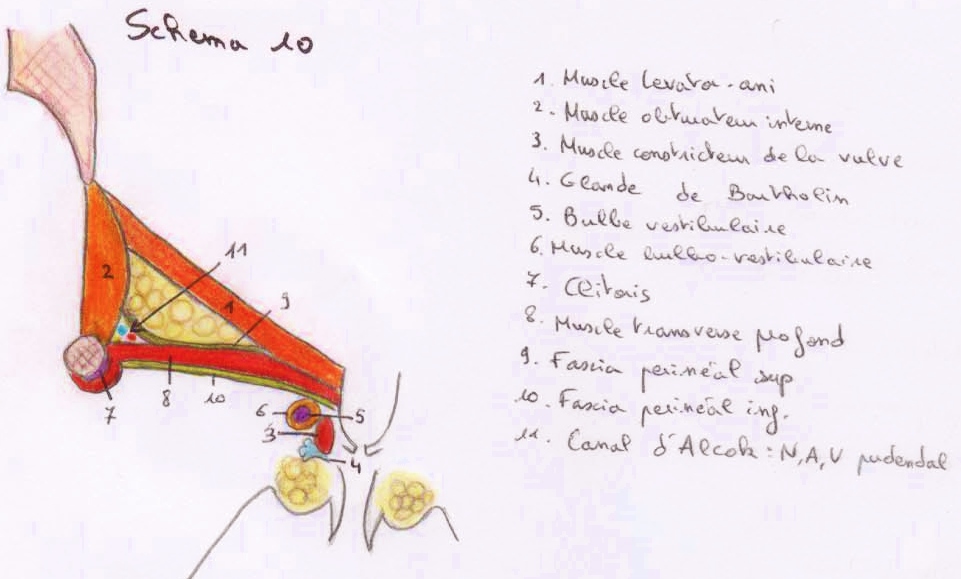 Schema 10
1. Muscle levator-ani
2. Muscle obturateur interne
3. Muscle constricteur de la vulve
4. Glande de Bartholin
5. Bulbe vestibulaire
6. Muscle bulbo-vestibulaire
7. Clitoris
8. Muscle transverse profond
9. Fascia périnéal sup
10. Fascia périnéal inf.
11. Canal d'Alcock : N, A, V pudendal
11
2
9
1
7
8
10
6
5
3
4